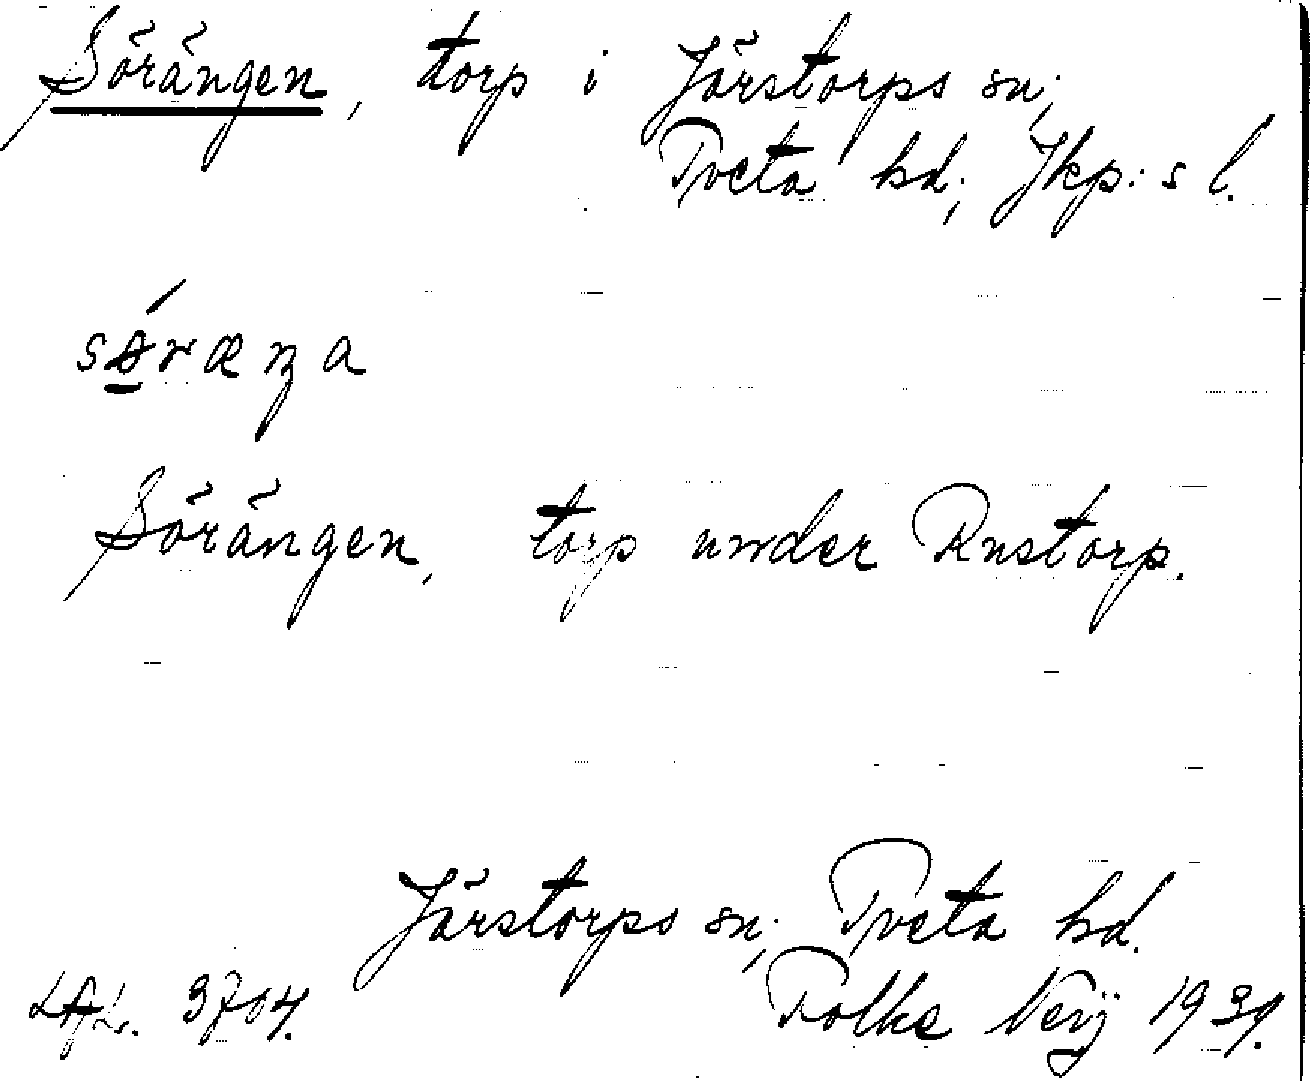 Sörängen, torp i Järstorps sn;
Tveta hd; Jkp:s l.
Sörängen, torp under Rustorp.
Järstorps sn; Tveta hd.
3704. Folke 1939.